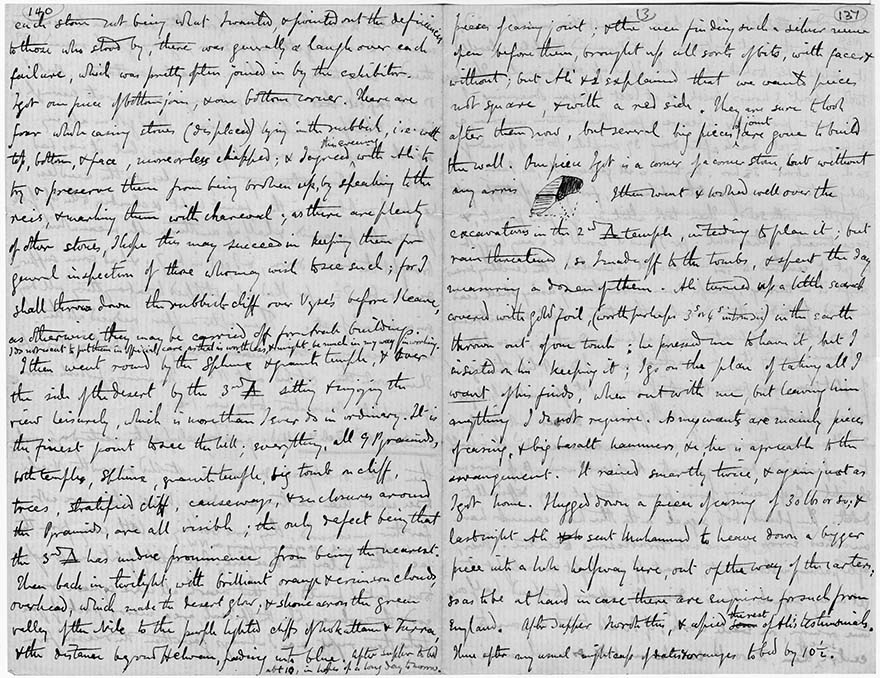 140
each stone not being what I wanted, & pointed out the deficiencies
to those who stood by, there was generally a laugh over each
failure, which was pretty often joined in by the exhibitor.
I got one piece of bottom join, & one bottom corner. There are
four whole casing stones (displaced) lying in the rubbish, i.e. with
top, bottom, & face, more or less chipped; & I agreed, this evening with Ali to
try & preserve them from being broken up, by speaking to the
reis, & marking them with charcoal; as there are plenty
of other stones, I hope this may succeed in keeping them for
general inspection of those who may wish to see such; for I
shall throw down the rubbish cliff over Vyse's before I leave,
as otherwise, they may be carried off for Arab buildings.
I do not want to put them in official care which is worthless, & might be much in my way for working.
I then went round by the Sphinx & granite temple, & over
the side of the desert by the 3rd Δ sitting & enjoying the
view leisurely, which is more than I ever do in ordinary. It is
the finest point to see the hill; everything, all 9 Pyramids,
with temples, Sphinx, granite temple, big tomb in cliff,
trees, stratified cliff, causeways, & enclosures around
the Pyramids, are all visible; the only defect being that
the 3rd Δ has undue prominence from being the nearest.
Then back in twilight, with brilliant orange & crimson clouds
overhead, which made the desert glow, & shone across the green
valley of the Nile to the purple lighted cliffs of Mokattam & Turra,
& the distance beyond Helwan, fading into blue. After supper to bed
abt 10, in hopes of a long day tomorrow.
13
137
pieces of casing joint; & the men finding such a silver mine
open before them, brought up all sorts of bits, with faces &
without; but Ali & I explained that we want pieces
not square, & with a red side. They are sure to look
after them now, but several big pieces of joint are gone to build
the wall. One piece I got is a corner of a corner stone, but without
any arris. I then went & looked well over the
excavations in the 2nd Δ temple, intending to plan it; but
rain threatened, so I made off to the tombs, & spent the day
measuring a dozen of them. Ali turned up a little scarab
covered with gold foil, (worth perhaps 3/ or 4/ intrinsic) in the earth
thrown out of one tomb; he pressed me to have it, but I
insisted on his keeping it; I go on the plan of taking all I
want of his finds, when out with me, but leaving him
anything I do not require. As my wants are mainly pieces
of casing, & big basalt hammers, &c he is agreeable to the
arrangement. It rained smartly twice, & again just as
I got home. I lugged down a piece of casing of 30 lbs or so; &
last night Ali sent Muhammed to heave down a bigger
piece into a hole halfway here, out of the way of the carters,
so as to be at hand in case there are enquiries for such from
England. After supper I wrote this, & copied the rest of Ali's testimonials.
Then after my usual nightcap of oranges to bed by 10½.